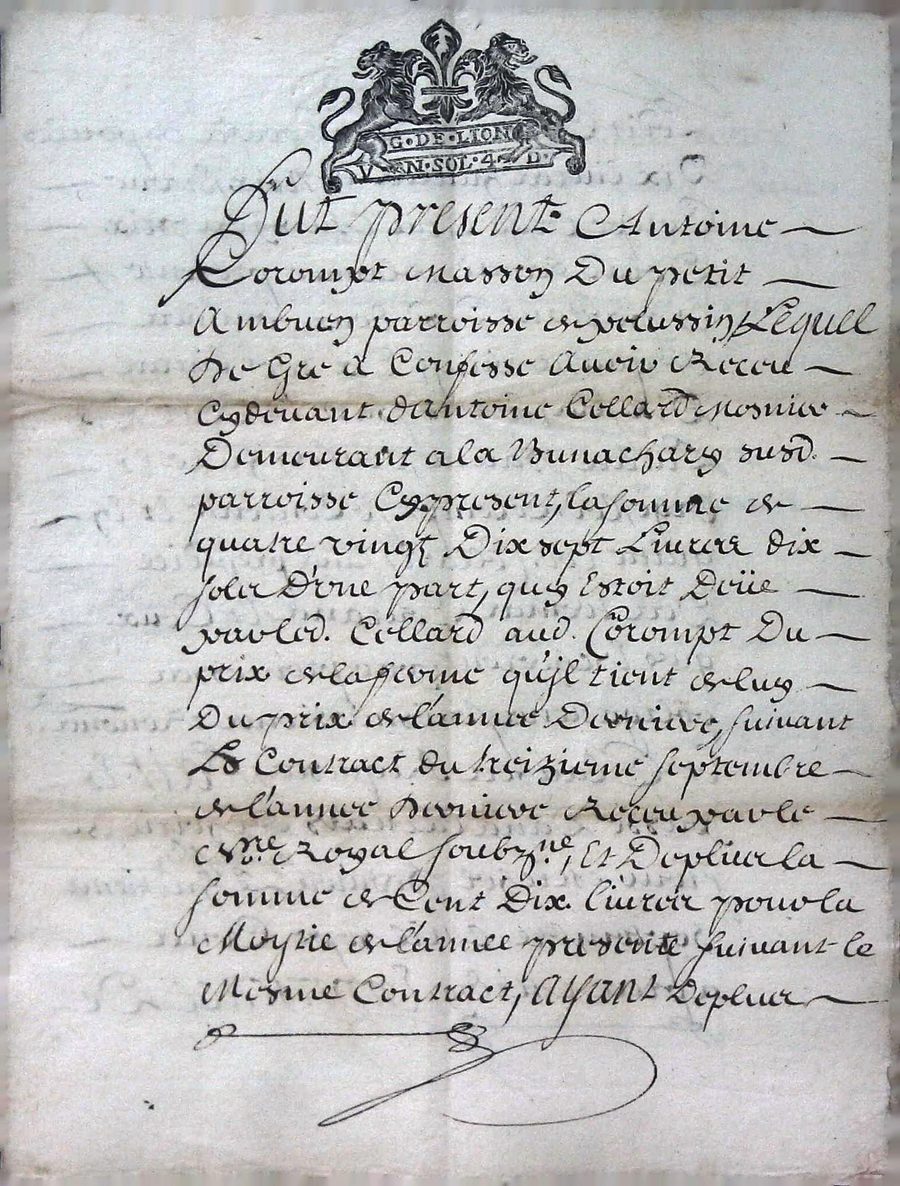 G·DE·LION
VN·SOL·4·D·
Fut present Antoine
Corompt Masson Du petit
Ambuen parroisse de pelussin, Lequel
De Gre a Confesse Avoir Receu
Cydevant dantoine Cellard Mosnier
Demeurant a la susd.
parroisse Cypresent, la somme de
quatre vingt Dix sept Livres dix
sols D'vne part, quy Estoit Deüe
par led. Cellard aud. Corompt Du
prix de la ferme qu'jl tient de luy
Du prix de l'année Derniere, suivant
Le Contract du treizieme septembre
de l'année Derniere Receu par le
me. Royal soubz.ne, Et Deplus la
somme de Cent Dix livres pour la
Moytie de l'année presente suivant le
Mesme Contract, Ayant Deplus